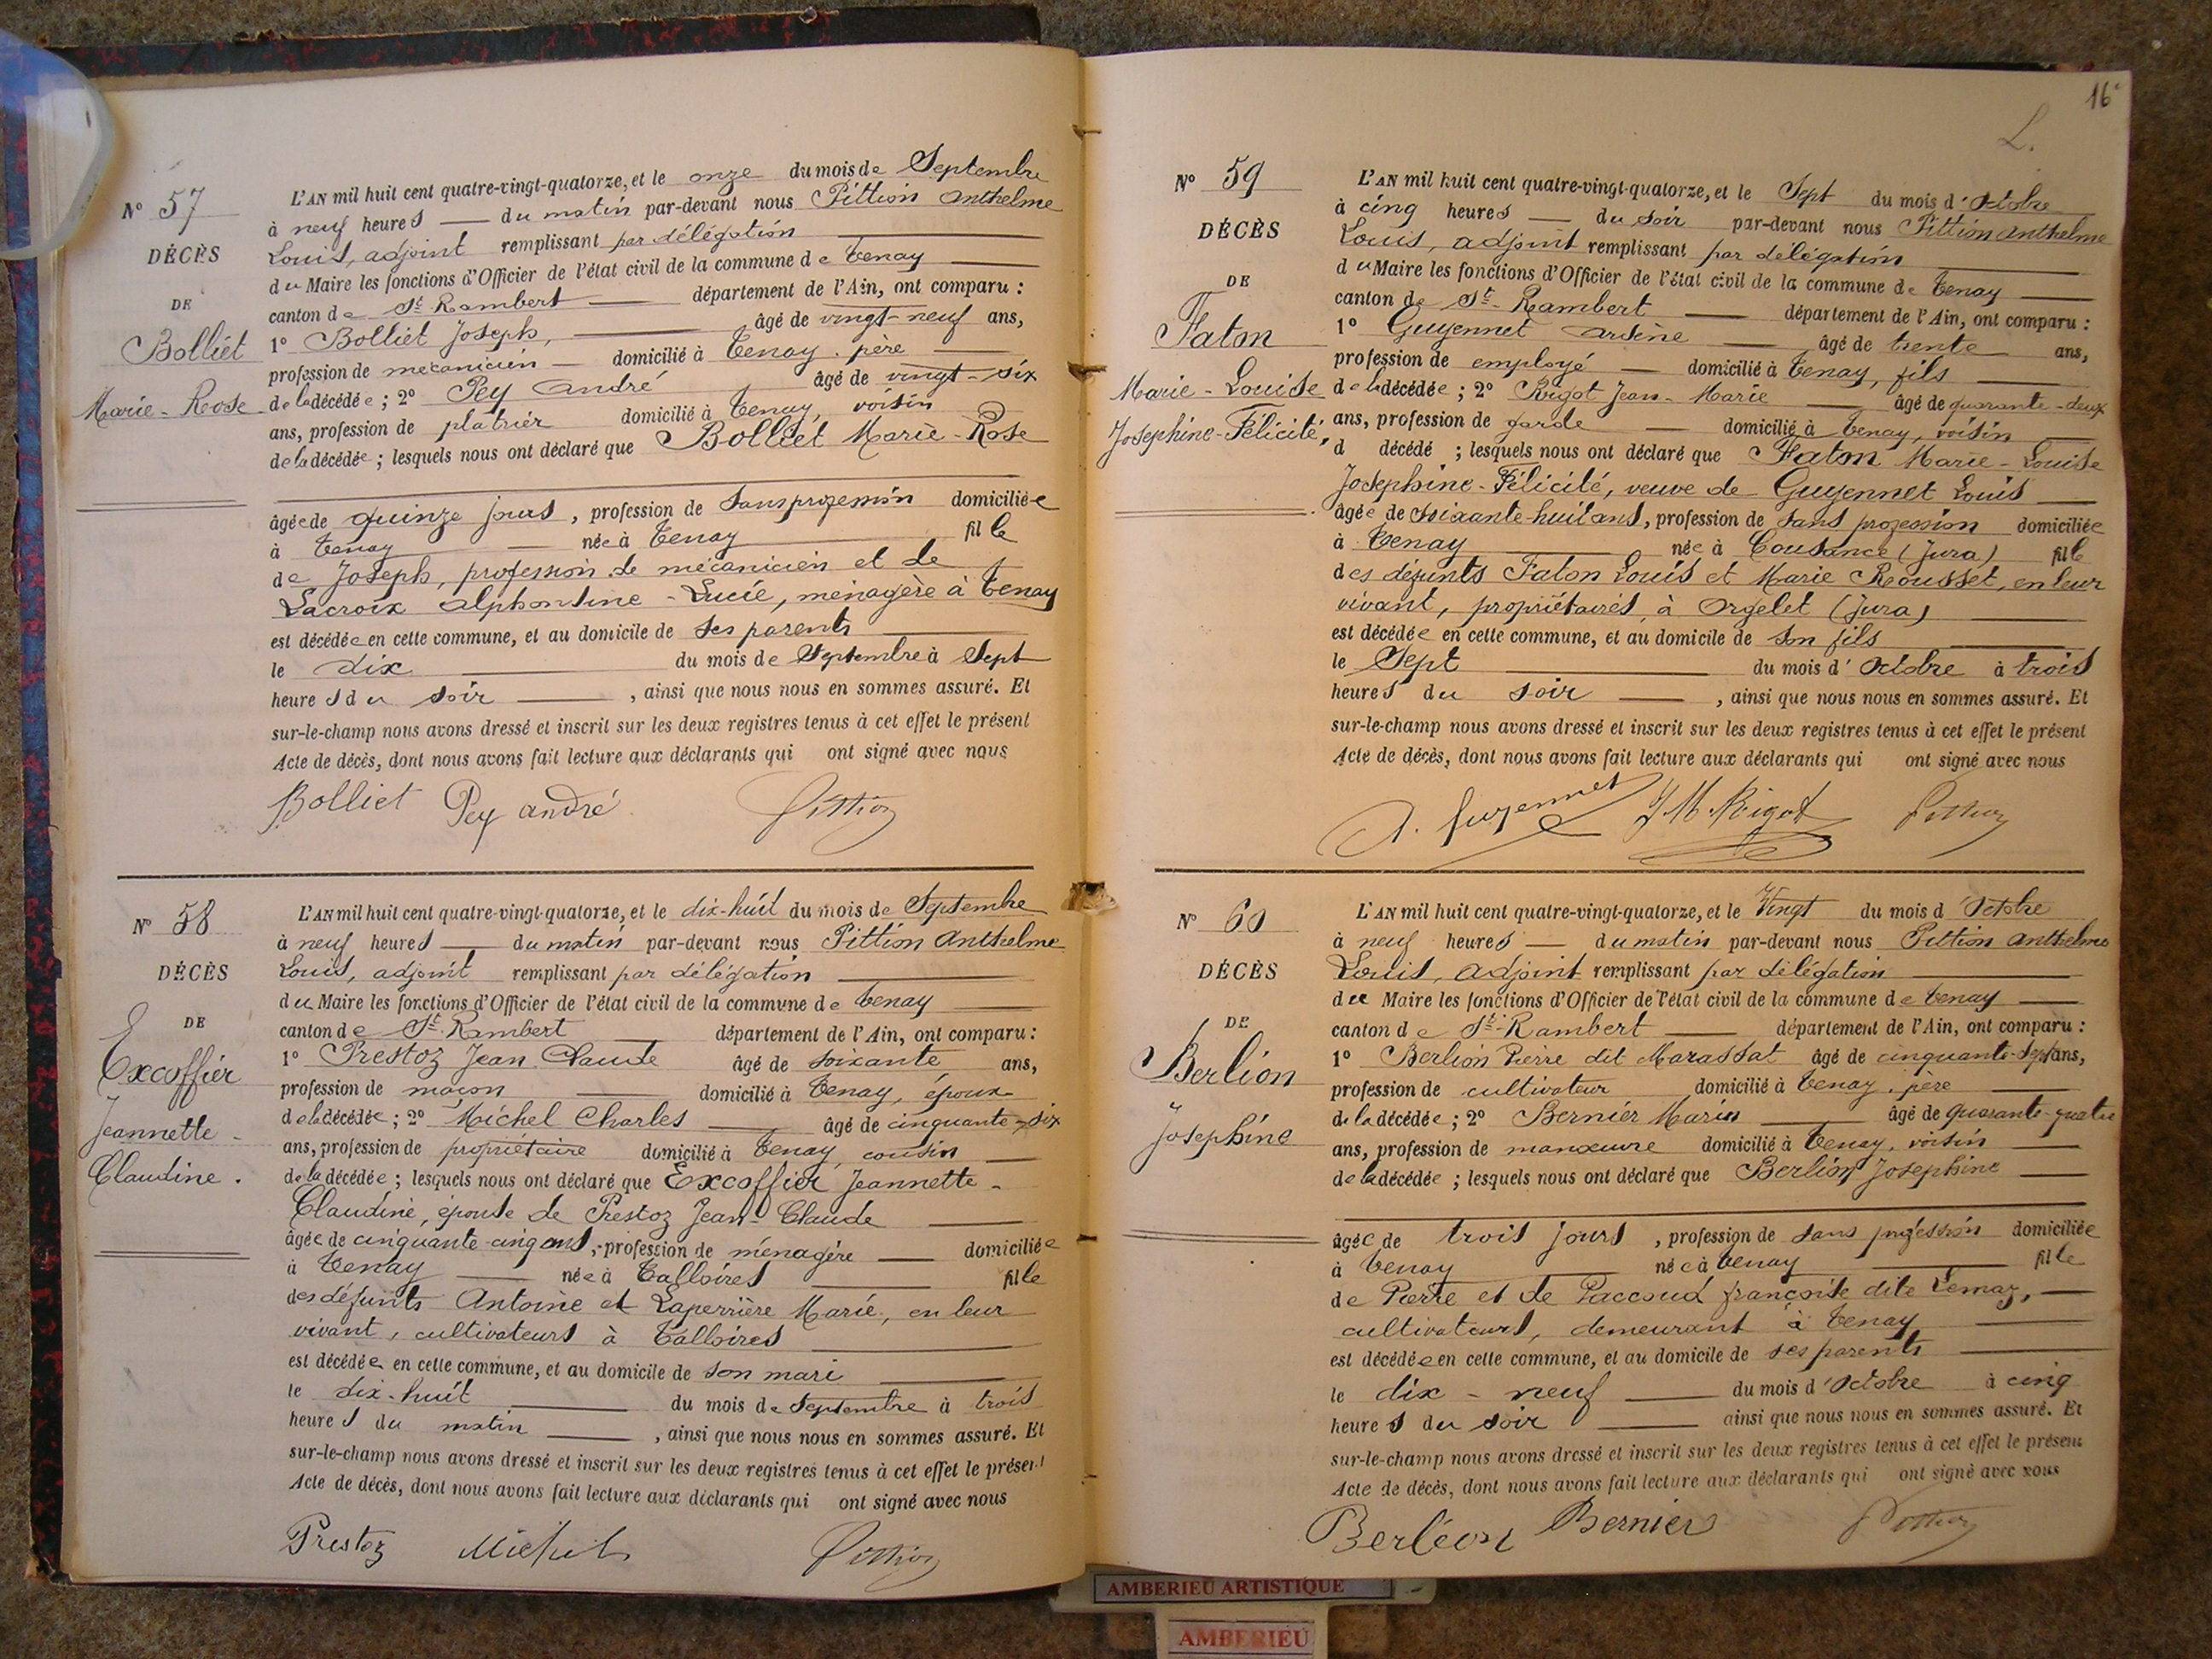 Nº 57
DÉCÈS
DE
Bolliet
Marie-Rose
L'AN mil huit cent quatre-vingt-quatorze, et le onze du mois de Septembre
à neuf heures du matin par-devant nous Pittion Anthelme
Louis, adjoint remplissant par délégation
du Maire les fonctions d'Officier de l'état civil de la commune de Tenay
canton de St Rambert département de l'Ain, ont comparu :
1º Bolliet Joseph, âgé de vingt-neuf ans,
profession de mécanicien domicilié à Tenay, père
de la décédée ; 2º Pey André âgé de vingt-six
ans, profession de platrier domicilié à Tenay, voisin
de la décédée ; lesquels nous ont déclaré que Bolliet Marie-Rose
âgée de quinze jours, profession de sans profession domiciliée
à Tenay née à Tenay fille
de Joseph, profession de mécanicien et de
Lacroix Alphonsine-Lucie, ménagère à Tenay
est décédée en cette commune, et au domicile de ses parents
le dix du mois de Septembre à Sept
heures du soir, ainsi que nous nous en sommes assuré. Et
sur-le-champ nous avons dressé et inscrit sur les deux registres tenus à cet effet le présent
Acte de décès, dont nous avons fait lecture aux déclarants qui ont signé avec nous
Bolliet Pey andré Pittion
Nº 58
DÉCÈS
DE
Excoffier
Jeannette-
Claudine.
L'AN mil huit cent quatre-vingt-quatorze, et le dix-huit du mois de Septembre
à neuf heures du matin par-devant nous Pittion Anthelme
Louis, adjoint remplissant par délégation
du Maire les fonctions d'Officier de l'état civil de la commune de Tenay
canton de St Rambert département de l'Ain, ont comparu :
1º Prestoz Jean Claude âgé de soixante ans,
profession de maçon domicilié à Tenay, époux
de la décédée ; 2º Michel Charles âgé de cinquante-six
ans, profession de propriétaire domicilié à Tenay, cousin
de la décédée ; lesquels nous ont déclaré que Excoffier Jeannette-
Claudine, épouse de Prestoz Jean-Claude
âgée de cinquante-cinq ans, profession de ménagère domiciliée
à Tenay née à Talloires fille
des défunts Antoine et Laperrière Marie, en leur
vivant, cultivateurs à Talloires
est décédée en cette commune, et au domicile de son mari
le dix-huit du mois de Septembre à trois
heures du matin, ainsi que nous nous en sommes assuré. Et
sur-le-champ nous avons dressé et inscrit sur les deux registres tenus à cet effet le présent
Acte de décès, dont nous avons fait lecture aux déclarants qui ont signé avec nous
Prestoz Michel Pittion
16
L.
Nº 59
DÉCÈS
DE
Faton
Marie-Louise
Josephine-Félicité,
L'AN mil huit cent quatre-vingt-quatorze, et le Sept du mois d'Octobre
à cinq heures du soir par-devant nous Pittion Anthelme
Louis, adjoint remplissant par délégation
du Maire les fonctions d'Officier de l'état civil de la commune de Tenay
canton de St-Rambert département de l'Ain, ont comparu :
1º Guyennet Arsène âgé de trente ans,
profession de employé domicilié à Tenay, fils
de la décédée ; 2º Rigot Jean-Marie âgé de quarante-deux
ans, profession de garde domicilié à Tenay, voisin
d décédé ; lesquels nous ont déclaré que Faton Marie-Louise
Josephine-Félicité, veuve de Guyennet Louis
âgée de soixante-huit ans, profession de sans profession domiciliée
à Tenay née à Cousance (Jura) fille
des défunts Faton Louis et Marie Rousset, en leur
vivant, propriétaires à Orgelet (Jura)
est décédée en cette commune, et au domicile de son fils
le Sept du mois d'Octobre à trois
heures du soir, ainsi que nous nous en sommes assuré. Et
sur-le-champ nous avons dressé et inscrit sur les deux registres tenus à cet effet le présent
Acte de décès, dont nous avons fait lecture aux déclarants qui ont signé avec nous
A. Guyennet J M Rigot Pittion
Nº 60
DÉCÈS
DE
Berlion
Josephine
L'AN mil huit cent quatre-vingt-quatorze, et le Vingt du mois d'Octobre
à neuf heures du matin par-devant nous Pittion Anthelme
Louis, adjoint remplissant par délégation
du Maire les fonctions d'Officier de l'état civil de la commune de Tenay
canton de St-Rambert département de l'Ain, ont comparu :
1º Berlion Pierre dit Marassat âgé de cinquante-sept ans,
profession de cultivateur domicilié à Tenay, père
de la décédée ; 2º Bernier Marin âgé de quarante-quatre
ans, profession de manœuvre domicilié à Tenay, voisin
de la décédée ; lesquels nous ont déclaré que Berlion Josephine
âgée de trois jours, profession de sans profession domiciliée
à Tenay née à Tenay fille
de Pierre et de Paccoud françoise dite Lemaz,
cultivateurs, demeurant à Tenay
est décédée en cette commune, et au domicile de ses parents
le dix-neuf du mois d'Octobre à cinq
heures du soir ainsi que nous nous en sommes assuré. Et
sur-le-champ nous avons dressé et inscrit sur les deux registres tenus à cet effet le présent
Acte de décès, dont nous avons fait lecture aux déclarants qui ont signé avec nous
Berléon Bernier Pittion
AMBERIEU ARTISTIQUE
AMBERIEU